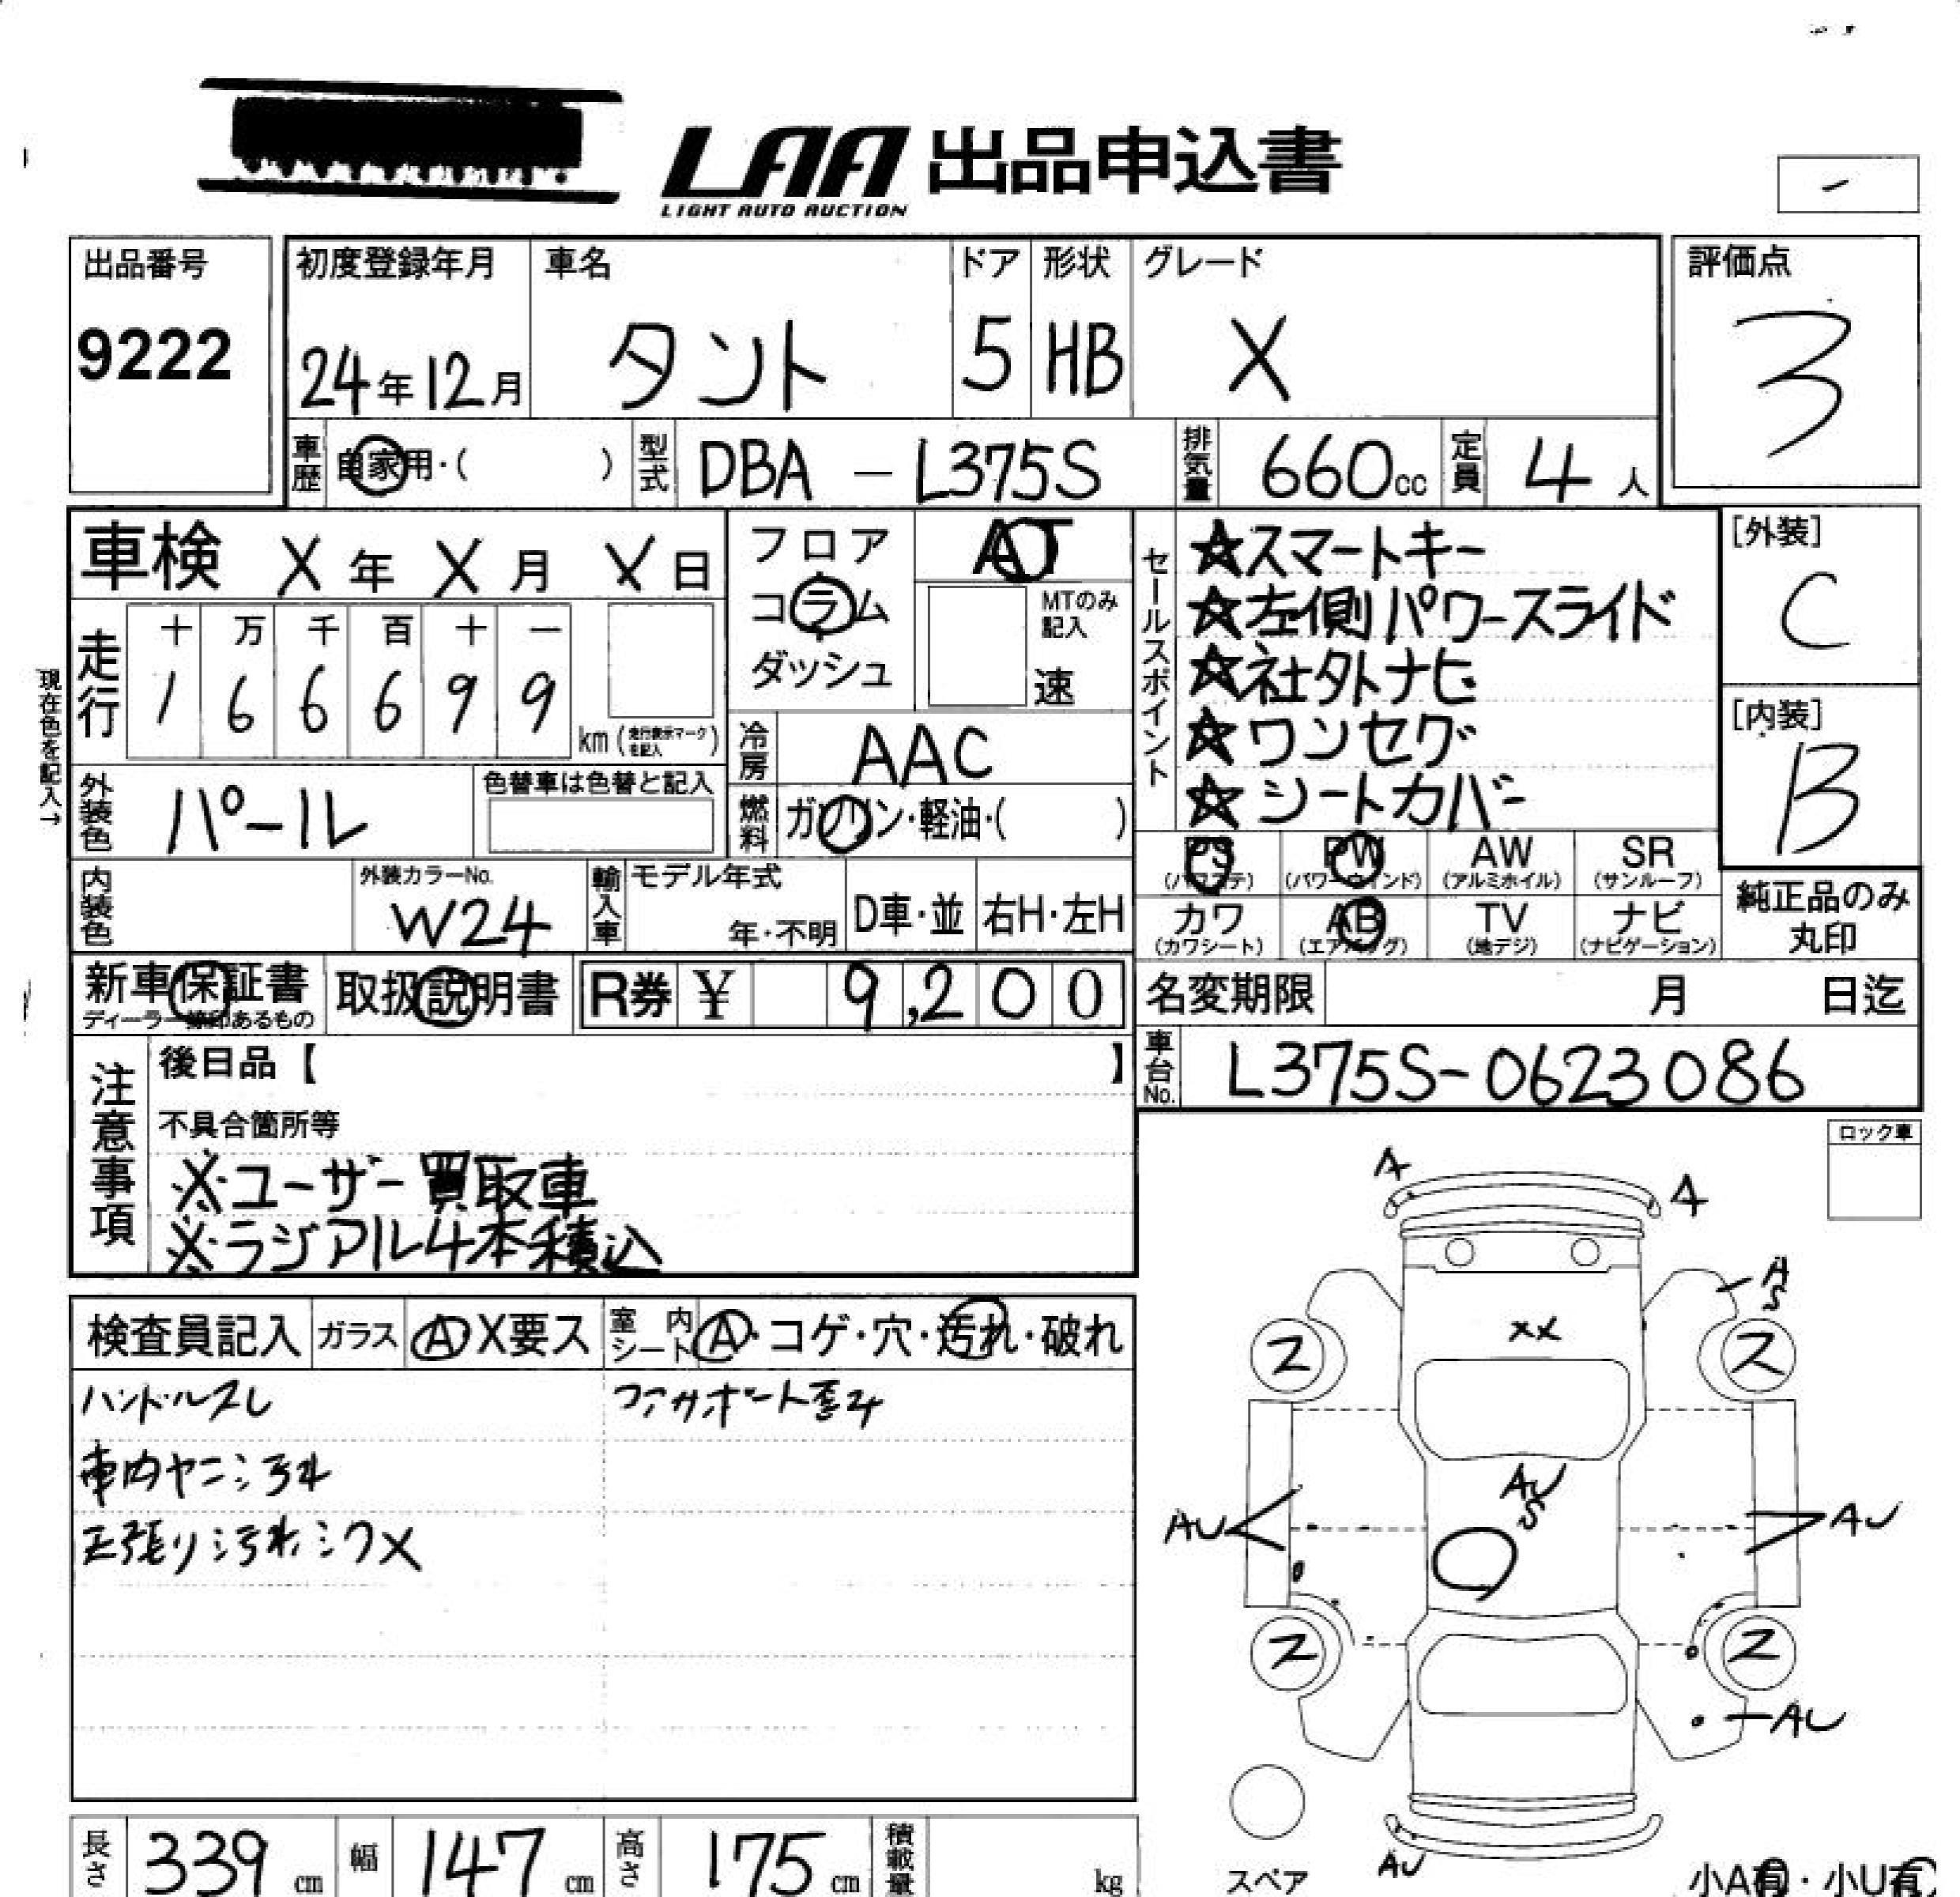 LAA 出品申込書
LIGHT AUTO AUCTION
出品番号
9222
初度登録年月
24年12月
車名
タント
ドア
5
形状
HB
グレード
X
評価点
3
車歴
自家用・( )
型式
DBA - L375S
排気量
660cc
定員
4人
車検 X年X月X日
フロア
コラム
ダッシュ
AT
MTのみ記入
速
セールスポイント
☆スマートキー
☆左側パワースライド
☆社外ナビ
☆ワンセグ
☆シートカバー
[外装]
C
[内装]
B
現在色を記入→
走行
十万千百十一
166699
km(走行表示マークを記入)
冷房
AAC
外装色
パール
色替車は色替と記入
燃料
ガソリン・軽油・( )
PS
(パワステ)
PW
(パワーウィンド)
AW
(アルミホイル)
SR
(サンルーフ)
カワ
(カワシート)
AB
(エアバッグ)
TV
(地デジ)
ナビ
(ナビゲーション)
純正品のみ
丸印
内装色
外装カラーNo.
W24
輸入車
モデル年式
年・不明
D車・並
右H・左H
新車保証書
ディーラー捺印あるもの
取扱説明書
R券 ¥ 9,200
名変期限 月 日迄
車台No.
L375S-0623086
注意事項
後日品【 】
不具合箇所等
※ユーザー買取車
※ラジアル4本積込
ロック車
検査員記入
ガラス
A X要ス
室内シート
A・コゲ・穴・汚れ・破れ
ハンドルスレ
コアサポート歪み
車内ヤニ汚れ
天張り汚れ シワX
A
A
A
S
XX
ス
ス
AU
S
AU
AU
ス
ス
AU
AU
スペア
小A有・小U有
長さ
339cm
幅
147cm
高さ
175cm
積載量
kg